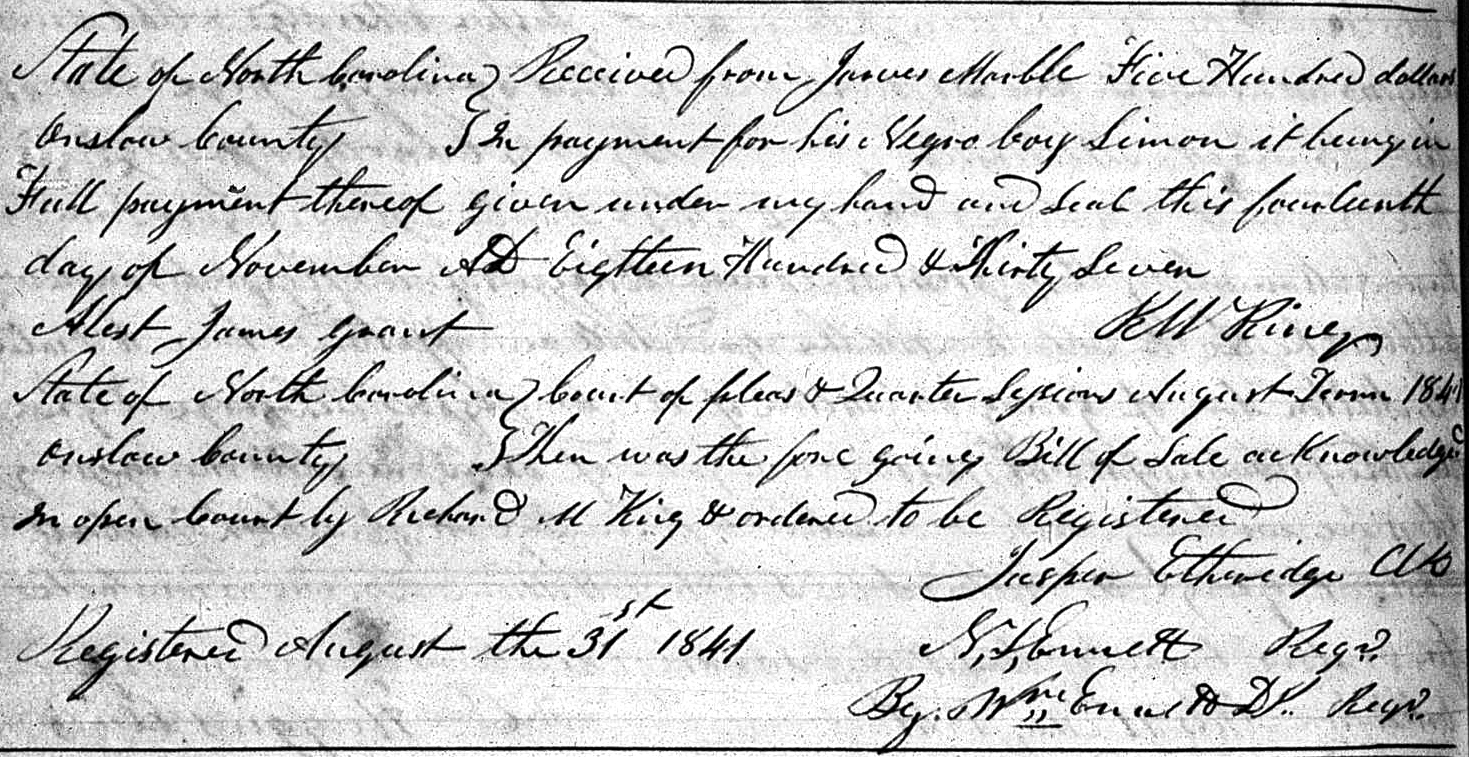 State of North Carolina } Received from James Marble Five Hundred dollars
Onslow County } In payment for his Negro boy Simon it being in
Full payment thereof given under my hand and Seal this fourteenth
day of November AD Eighteen Hundred & Thirty Seven
Atest James Grant R W King
State of North Carolina } Court of pleas & Quarter Sessions August Term 1841
Onslow County } Then was the fore going Bill of Sale acknowledged
In open Court by Richard W King & ordered to be Registered
Jasper Etheridge Clk
Registered August the 31st 1841 N. L. Ennett Regr.
By. Wm Ennett D. Regr.